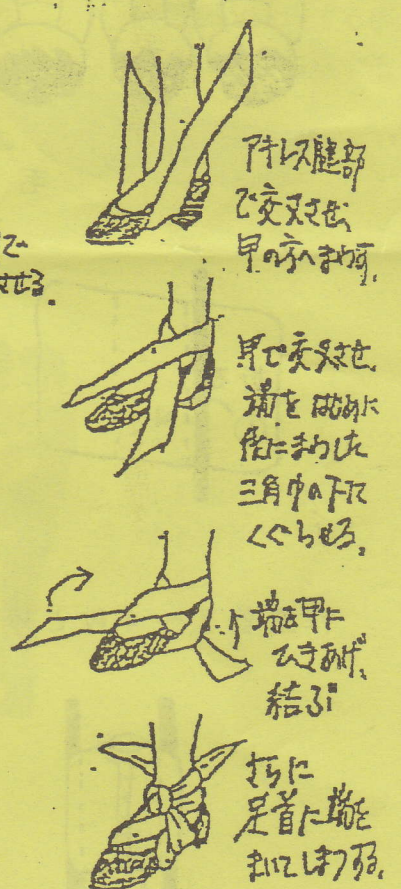 アキレス腱部
で交叉させ、
甲の方へまわす。
で
させる。
甲で交叉させ、
端をはじめに
後にまわした
三角巾の下に
くぐらせる。
端を甲に
ひきあげ、
結ぶ
さらに
足首に端を
まいてしまつする。